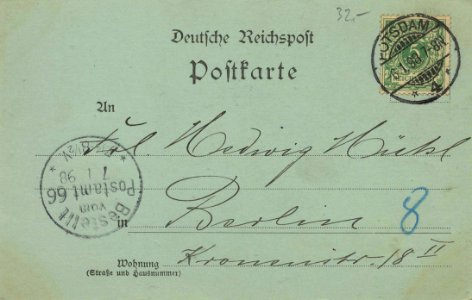 32.-
Deutsche Reichspost
Postkarte
POTSDAM
4
An
Frl. Hedwig
Bestellt
vom
Postamt 66
7 1 98
in Berlin
8
Wohnung
(Straße und Hausnummer)
18 II